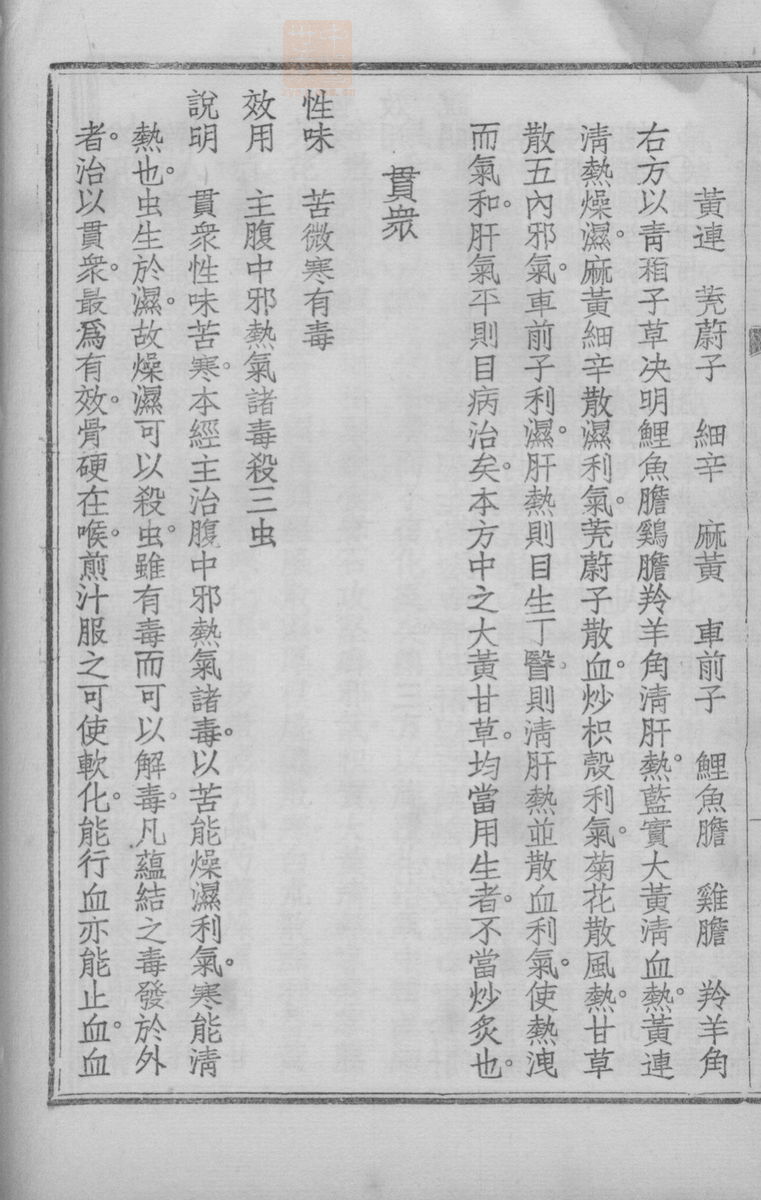 黃連　茺蔚子　細辛　麻黃　車前子　鯉魚膽　雞膽　羚羊角
右方以靑葙子草决明鯉魚膽鷄膽羚羊角淸肝熱。藍實大黃淸血熱。黃連
淸熱燥濕。麻黃細辛散濕利氣。茺蔚子散血。炒枳殼利氣。菊花散風熱。甘草
散五內邪氣。車前子利濕。肝熱則目生丁瞖。則淸肝熱並散血利氣。使熱洩
而氣和。肝氣平則目病治矣。本方中之大黃甘草。均當用生者。不當炒炙也。
貫衆
性味　苦微寒有毒
效用　主腹中邪熱氣諸毒殺三虫
說明　貫衆性味苦寒。本經主治腹中邪熱氣諸毒。以苦能燥濕利氣。寒能淸
熱也。虫生於濕。故燥濕可以殺虫。雖有毒而可以解毒。凡蘊結之毒發於外
者。治以貫衆。最爲有效。骨硬在喉。煎汁服之可使軟化。能行血亦能止血。血